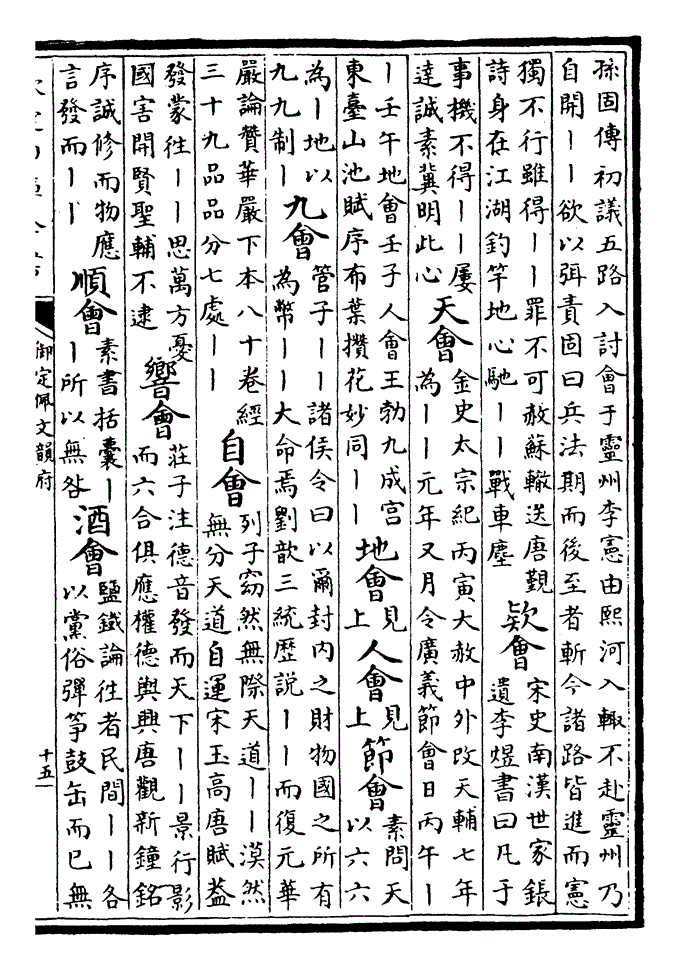 孫固傳初議五路入討會于靈州李憲由熙河入輙不赴靈州乃
自開丨丨欲以弭責固曰兵法期而後至者斬今諸路皆進而憲
獨不行雖得丨丨罪不可赦蘇轍送唐覲
詩身在江湖釣竿地心馳丨丨戰車塵
欵會
宋史南漢世家鋹
遺李煜書曰凡于
事機不得丨丨屢
達誠素冀明此心
天會
金史太宗紀丙寅大赦中外改天輔七年
為丨丨元年又月令廣義節會日丙午丨
丨壬午地會壬子人會王勃九成宫
東臺山池賦序布葉攢花妙同丨丨
地會
見
上
人會
見
上
節會
素問天
以六六
為丨地以
九九制丨
九會
管子丨丨諸侯令曰以爾封内之財物國之所有
為幣丨丨大命焉劉歆三統歴説丨丨而復元華
嚴論贊華嚴下本八十卷經
三十九品品分七處丨丨
自會
列子窈然無際天道丨丨漠然
無分天道自運宋玉高唐賦葢
發蒙徃丨丨思萬方憂
國害開賢聖輔不逮
響會
莊子注德音發而天下丨丨景行影
而六合俱應權德輿興唐觀新鐘銘
序誠修而物應
言發而丨丨
順會
素書括囊丨
丨所以無咎
酒會
鹽鐵論徃者民間丨丨各
以黨俗彈筝鼓缶而已無
御定佩文韻府
十五